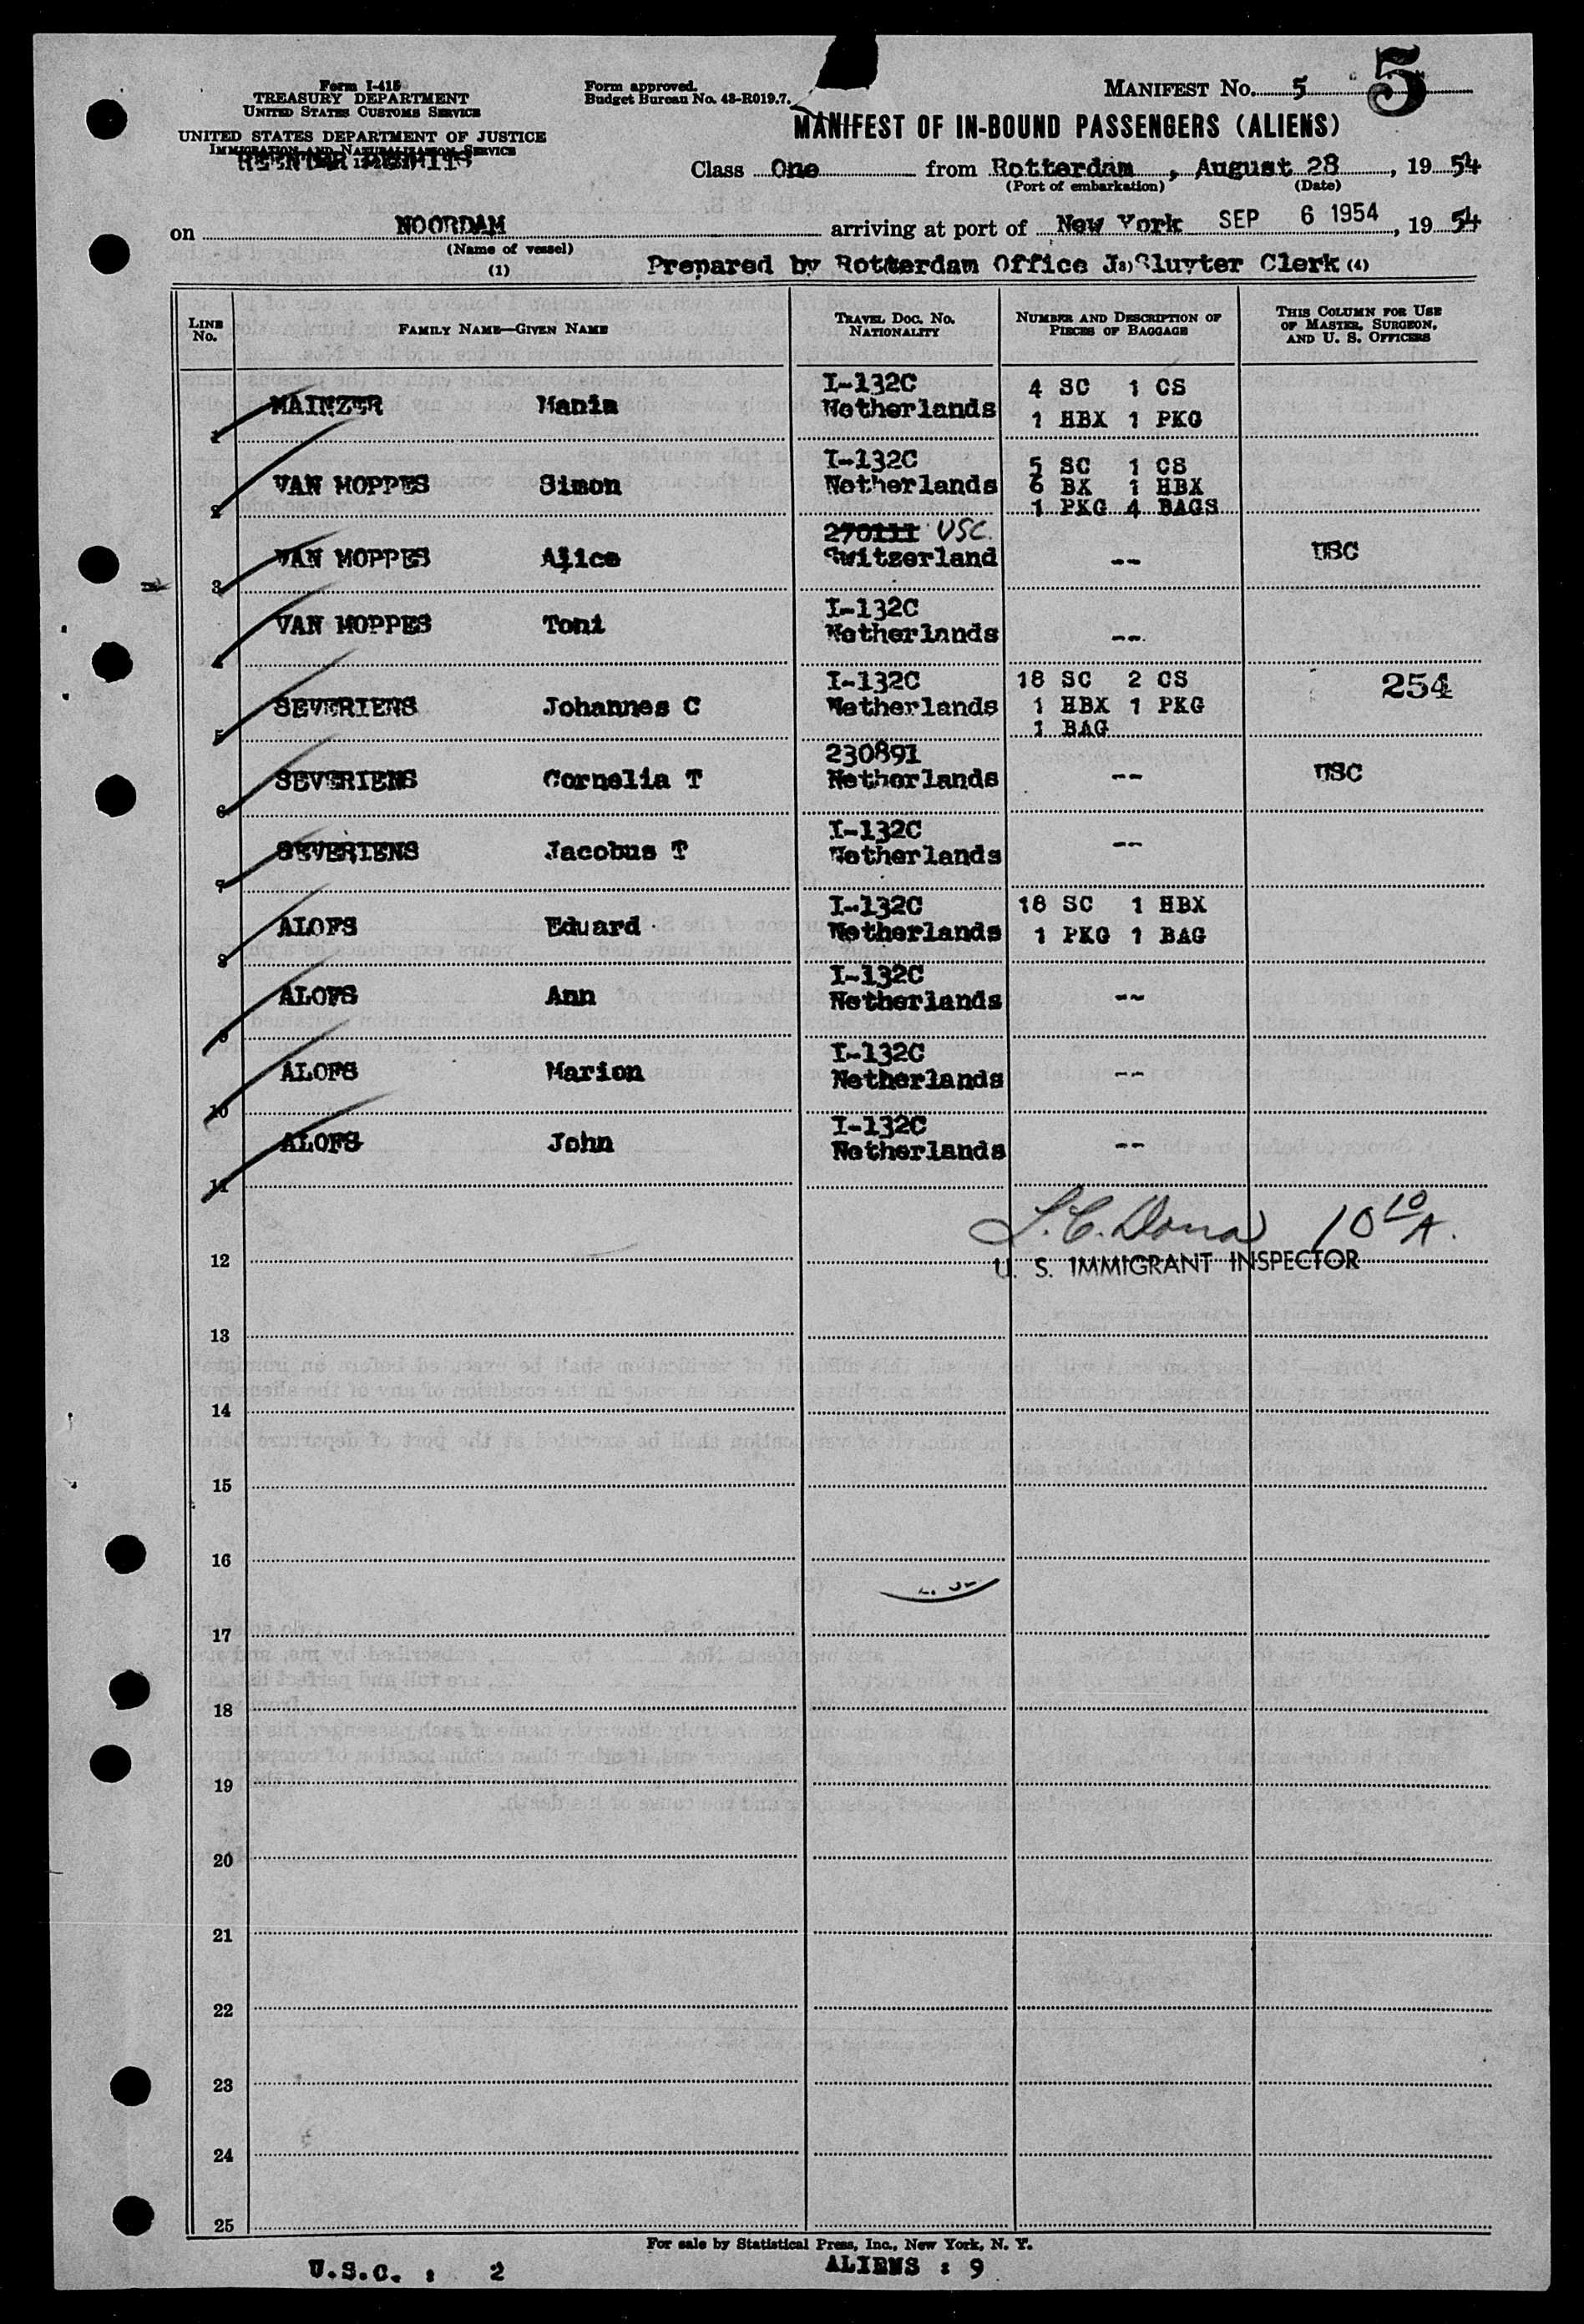 Form I-415
TREASURY DEPARTMENT
UNITED STATES CUSTOMS SERVICE
UNITED STATES DEPARTMENT OF JUSTICE
IMMIGRATION AND NATURALIZATION SERVICE
REENTRY PERMITS
Form approved.
Budget Bureau No. 43-R019.7.
MANIFEST No. 5 5
MANIFEST OF IN-BOUND PASSENGERS (ALIENS)
Class One from Rotterdam , August 28 , 19 54
(Port of embarkation) (Date)
on NOORDAM arriving at port of New York SEP 6 1954 , 19 54
(Name of vessel)
(1) Prepared by Rotterdam Office J (3) Sluyter Clerk (4)
LINE No. FAMILY NAME—GIVEN NAME TRAVEL DOC. NO. NATIONALITY NUMBER AND DESCRIPTION OF PIECES OF BAGGAGE THIS COLUMN FOR USE OF MASTER, SURGEON, AND U. S. OFFICERS
I-132C 4 SC 1 CS
1 MAINZER Mania Netherlands 1 HBX 1 PKG
I-132C 5 SC 1 CS
2 VAN MOPPES Simon Netherlands 6 BX 1 HBX
1 PKG 4 BAGS
270111 USC.
3 VAN MOPPES Alice Switzerland -- USC
I-132C
4 VAN MOPPES Toni Netherlands --
I-132C 18 SC 2 CS 254
5 SEVERIENS Johannes C Netherlands 1 HBX 1 PKG
1 BAG
230891
6 SEVERIENS Cornelia T Netherlands -- USC
I-132C
7 SEVERIENS Jacobus T Netherlands --
I-132C 18 SC 1 HBX
8 ALOFS Eduard Netherlands 1 PKG 1 BAG
I-132C
9 ALOFS Ann Netherlands --
I-132C
10 ALOFS Marion Netherlands --
I-132C
11 ALOFS John Netherlands --
10 10 A.
12 U. S. IMMIGRANT INSPECTOR
13
14
15
16
17
18
19
20
21
22
23
24
25
For sale by Statistical Press, Inc., New York, N. Y.
U.S.C. : 2 ALIENS : 9